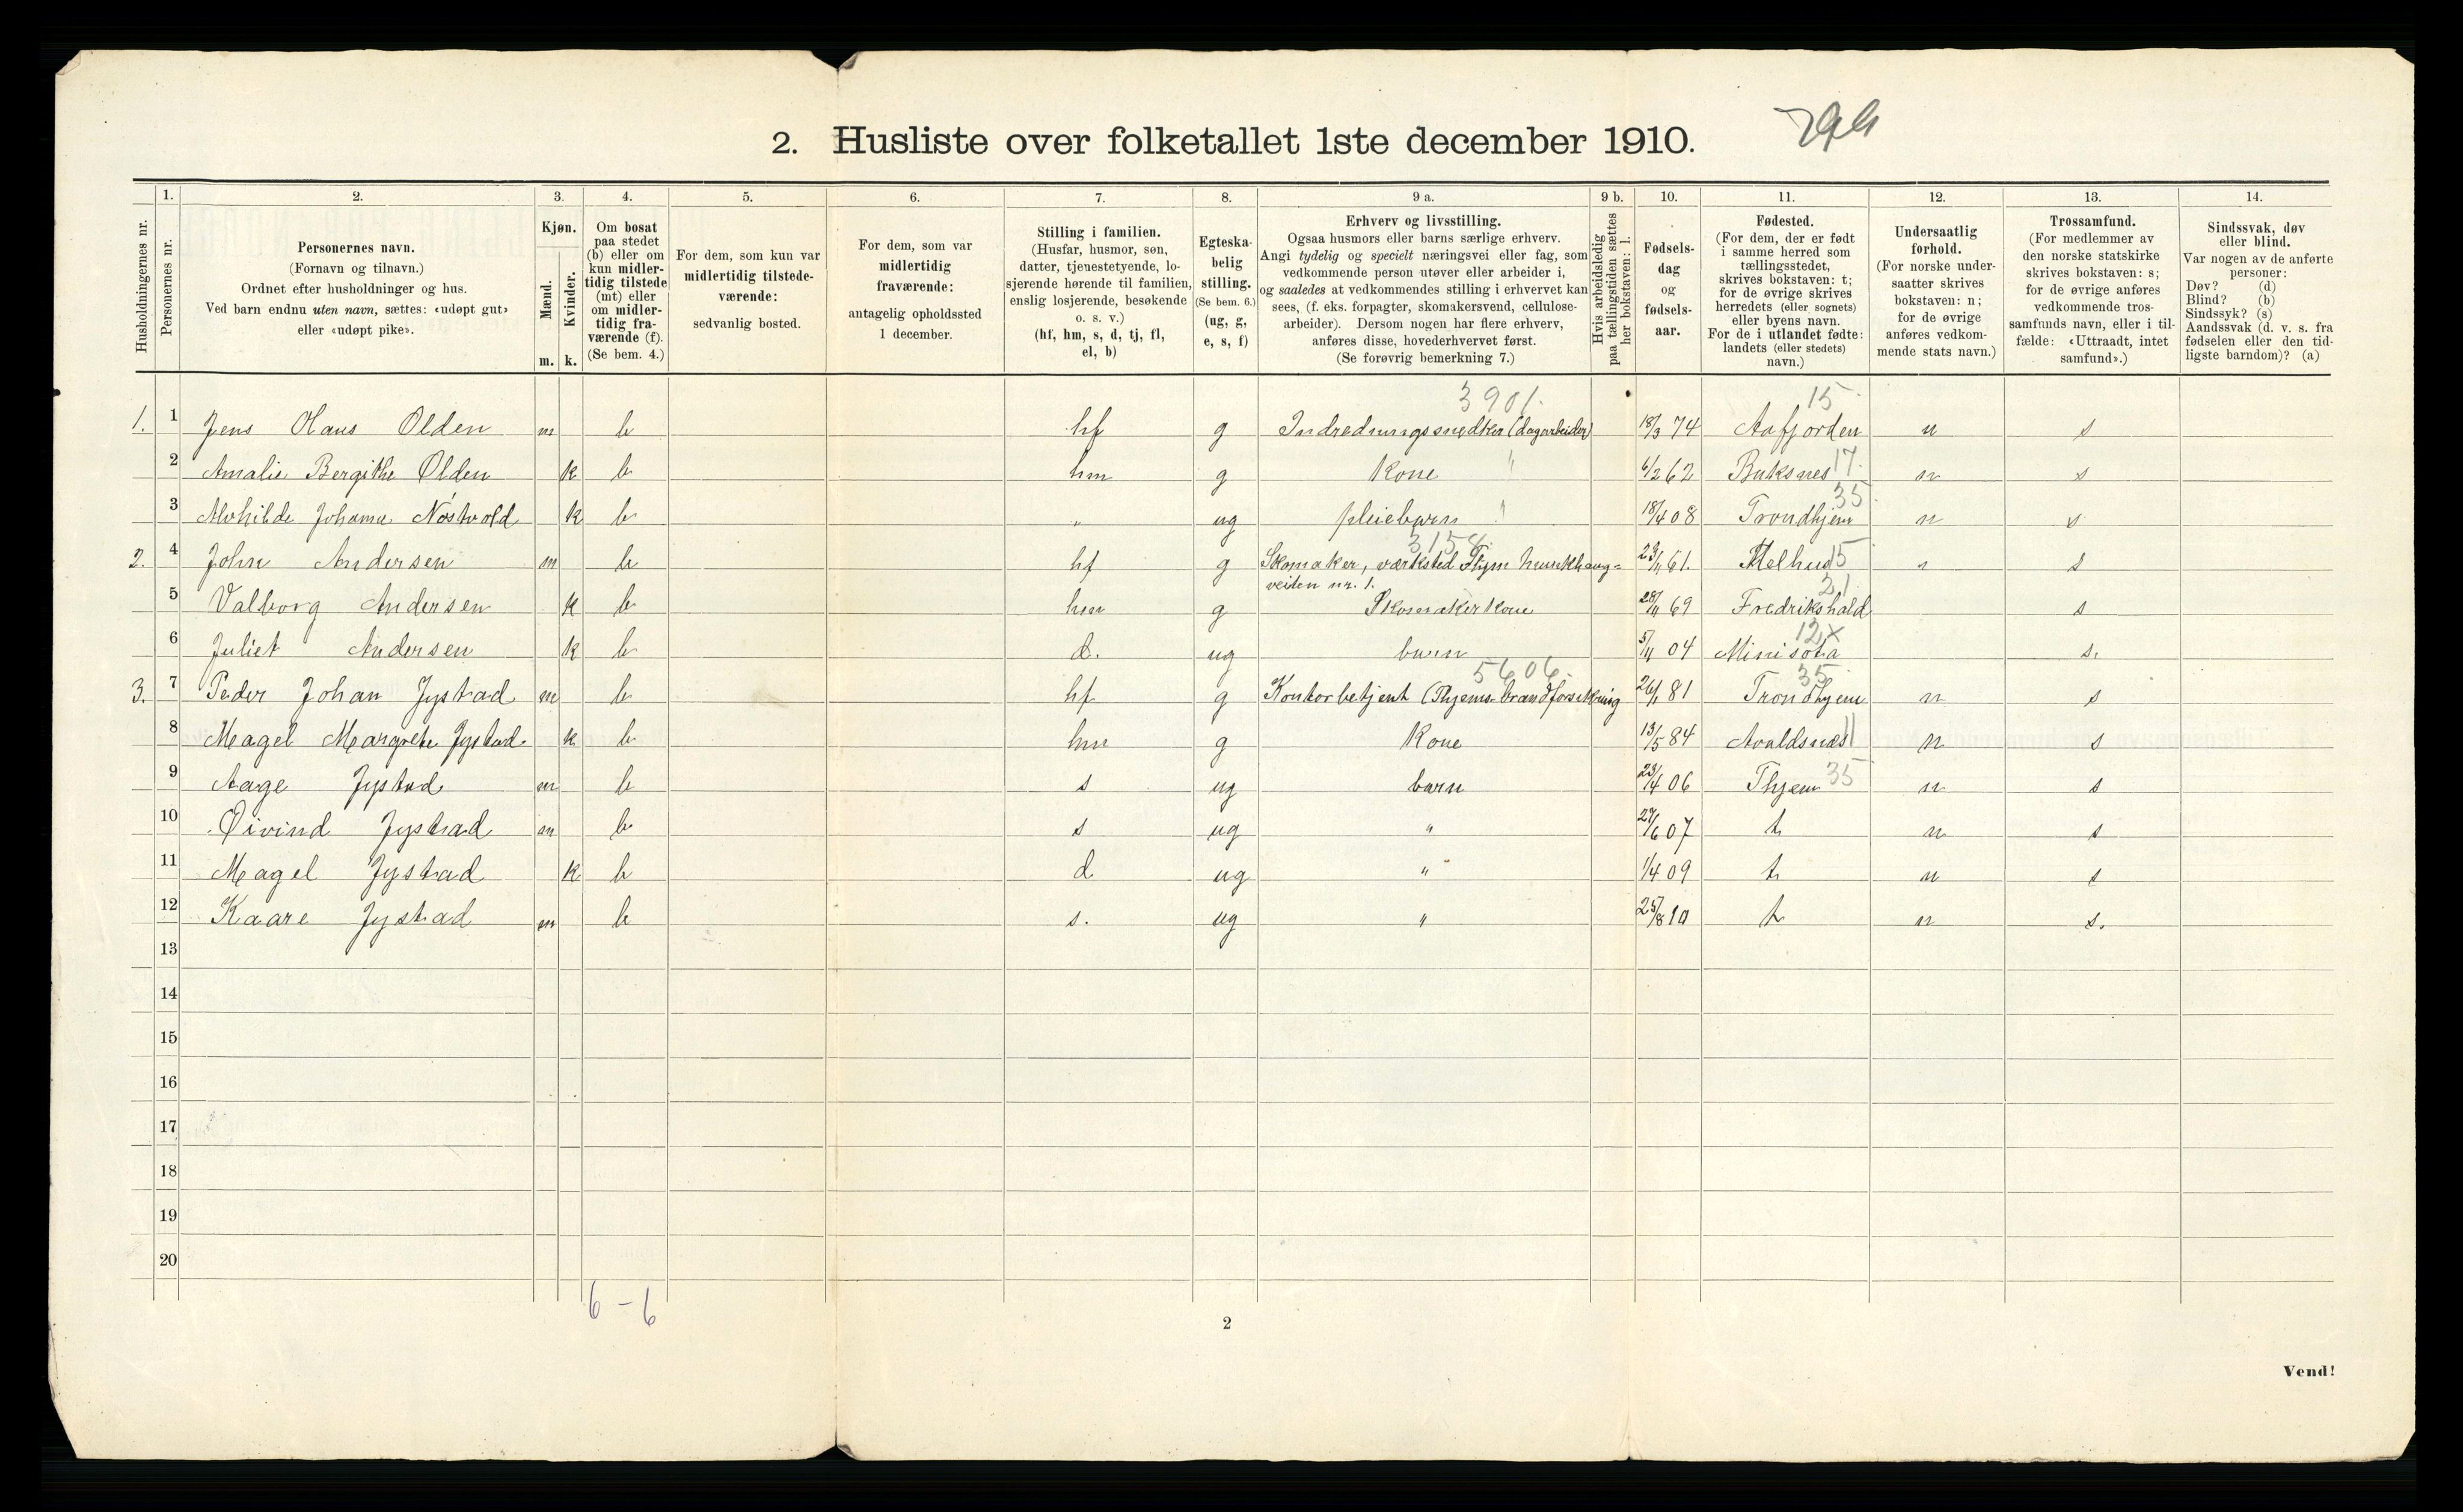 2. Husliste over folketallet 1ste december 1910.
Husholdningernes nr.
1. Personernes nr.
2. Personernes navn. (Fornavn og tilnavn.) Ordnet efter husholdninger og hus. Ved barn endnu uten navn, sættes: «udøpt gut» eller «udøpt pike».
3. Kjøn. Mænd. m. Kvinder. k.
4. Om bosat paa stedet (b) eller om kun midlertidig tilstede (mt) eller om midlertidig fraværende (f). (Se bem. 4.)
5. For dem, som kun var midlertidig tilstedeværende: sedvanlig bosted.
6. For dem, som var midlertidig fraværende: antagelig opholdssted 1 december.
7. Stilling i familien. (Husfar, husmor, søn, datter, tjenestetyende, losjerende hørende til familien, enslig losjerende, besøkende o. s. v.) (hf, hm, s, d, tj, fl, el, b)
8. Egteskabelig stilling. (Se bem. 6.) (ug, g, e, s, f)
9 a. Erhverv og livsstilling. Ogsaa husmors eller barns særlige erhverv. Angi tydelig og specielt næringsvei eller fag, som vedkommende person utøver eller arbeider i, og saaledes at vedkommendes stilling i erhvervet kan sees, (f. eks. forpagter, skomakersvend, cellulosearbeider). Dersom nogen har flere erhverv, anføres disse, hovederhvervet først. (Se forøvrig bemerkning 7.)
9 b. Hvis arbeidsledig paa tællingstiden sættes her bokstaven: l.
10. Fødselsdag og fødselsaar.
11. Fødested. (For dem, der er født i samme herred som tællingsstedet, skrives bokstaven: t; for de øvrige skrives herredets (eller sognets) eller byens navn. For de i utlandet fødte: landets (eller stedets) navn.)
12. Undersaatlig forhold. (For norske undersaatter skrives bokstaven: n; for de øvrige anføres vedkommende stats navn.)
13. Trossamfund. (For medlemmer av den norske statskirke skrives bokstaven: s; for de øvrige anføres vedkommende trossamfunds navn, eller i tilfælde: «Uttraadt, intet samfund».)
14. Sindssvak, døv eller blind. Var nogen av de anførte personer: Døv? (d) Blind? (b) Sindssyk? (s) Aandssvak (d. v. s. fra fødselen eller den tidligste barndom)? (a)
3901. 15
1. 1 Jens Olaus Olden m b hf g Indredningssnedker (dagarbeider) 18/3 74 Aafjorden n s
2 Amalie Bergithe Olden k b hm g Kone " 6/2 62 Buksnes 17. n s
35
3 Alvhilde Johanna Nóstvold k b " ug pleiebarn " 18/4 08 Trondhjem n s
3154
2. 4 John Andersen m b hf g Skomaker, værksted Thjem Munkhaug= 23/11 61. Melhus 15 n s
veiten nr. 1.
31
5 Valborg Andersen k b hm g Skomakerkone 28/11 69 Fredrikshald s
12x
6 Juliet Andersen k b d. ug barn 5/11 04 Minisota s.
5606 35
3. 7 Peder Johan Jystad m b hf g Kontorbetjent (Thjems brandforsikring 26/1 81 Trondhjem n s
8 Magel Margrete Jystad k b hm g Kone 13/5 84 Avaldsnæs 11 n s
9 Aage Jystad m b s ug barn 23/4 06 Thjem 35 n s
10 Øivind Jystad m b s ug " 27/6 07 t n s
11 Magel Jystad k b d ug " 1/4 09 t n s
12 Kaare Jystad m b s. ug " 25/8 10 t n s.
13
14
15
16
17
18
19
20
6 – 6
2
Vend!